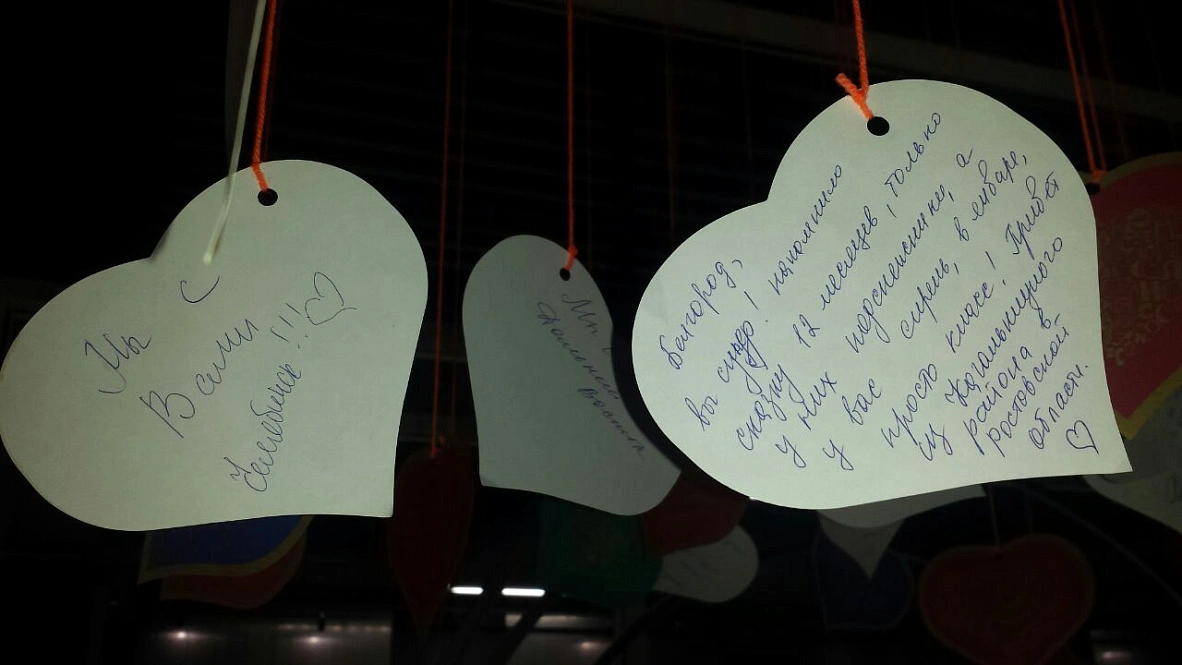 Мы с
Вами
Челябинск!!!
Мы с
Дальний
Восток
Белгород,
вы супер! напомнило
сказку 12 месяцев, только
у них подснежники, а
у вас сирень, в январе,
просто класс! Привет
из Кагальницкого
района в
Ростовской
области.